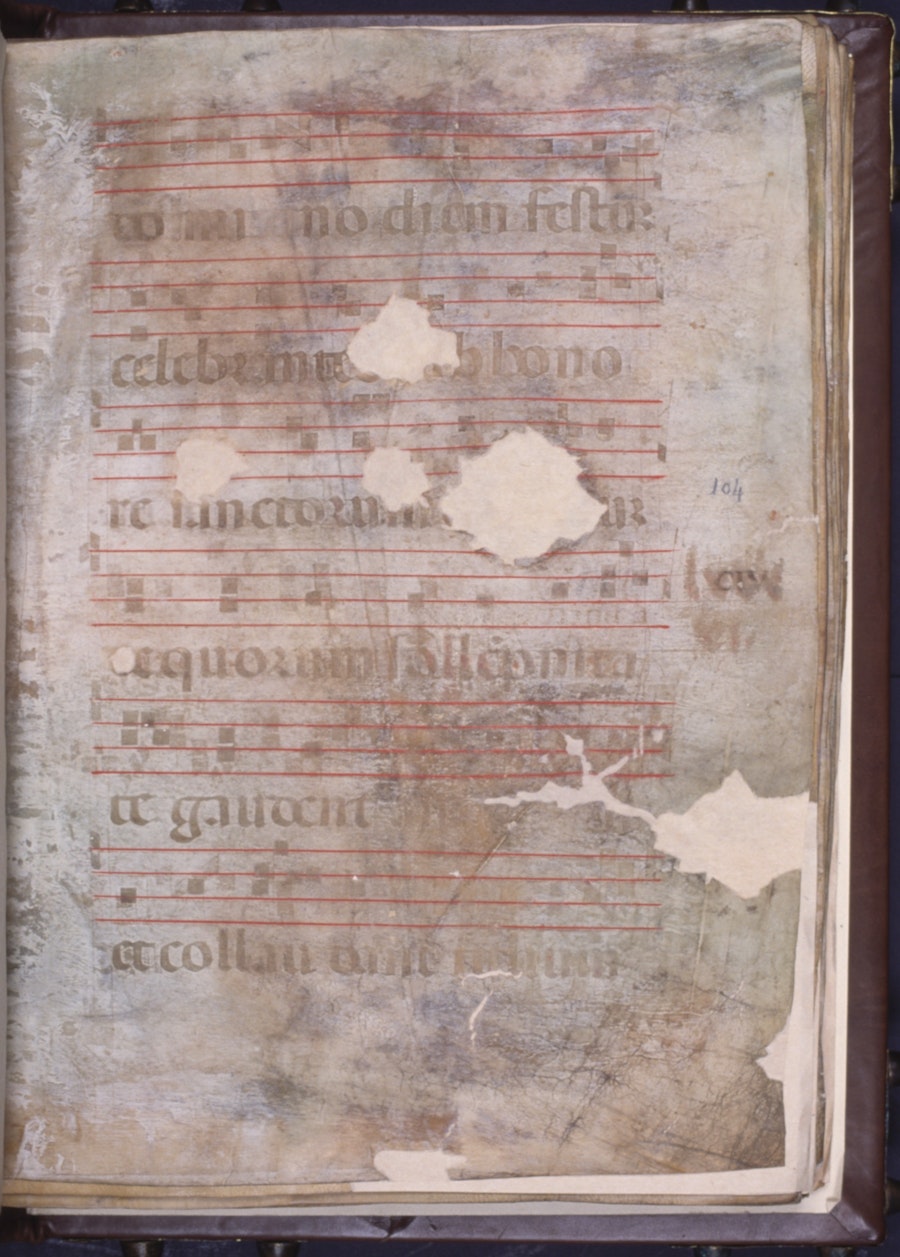 do mi no diem festũ
celebrantes b bono
re sanctorum
104
quorum sollẽpnita
te gaudent
et collau dant filium